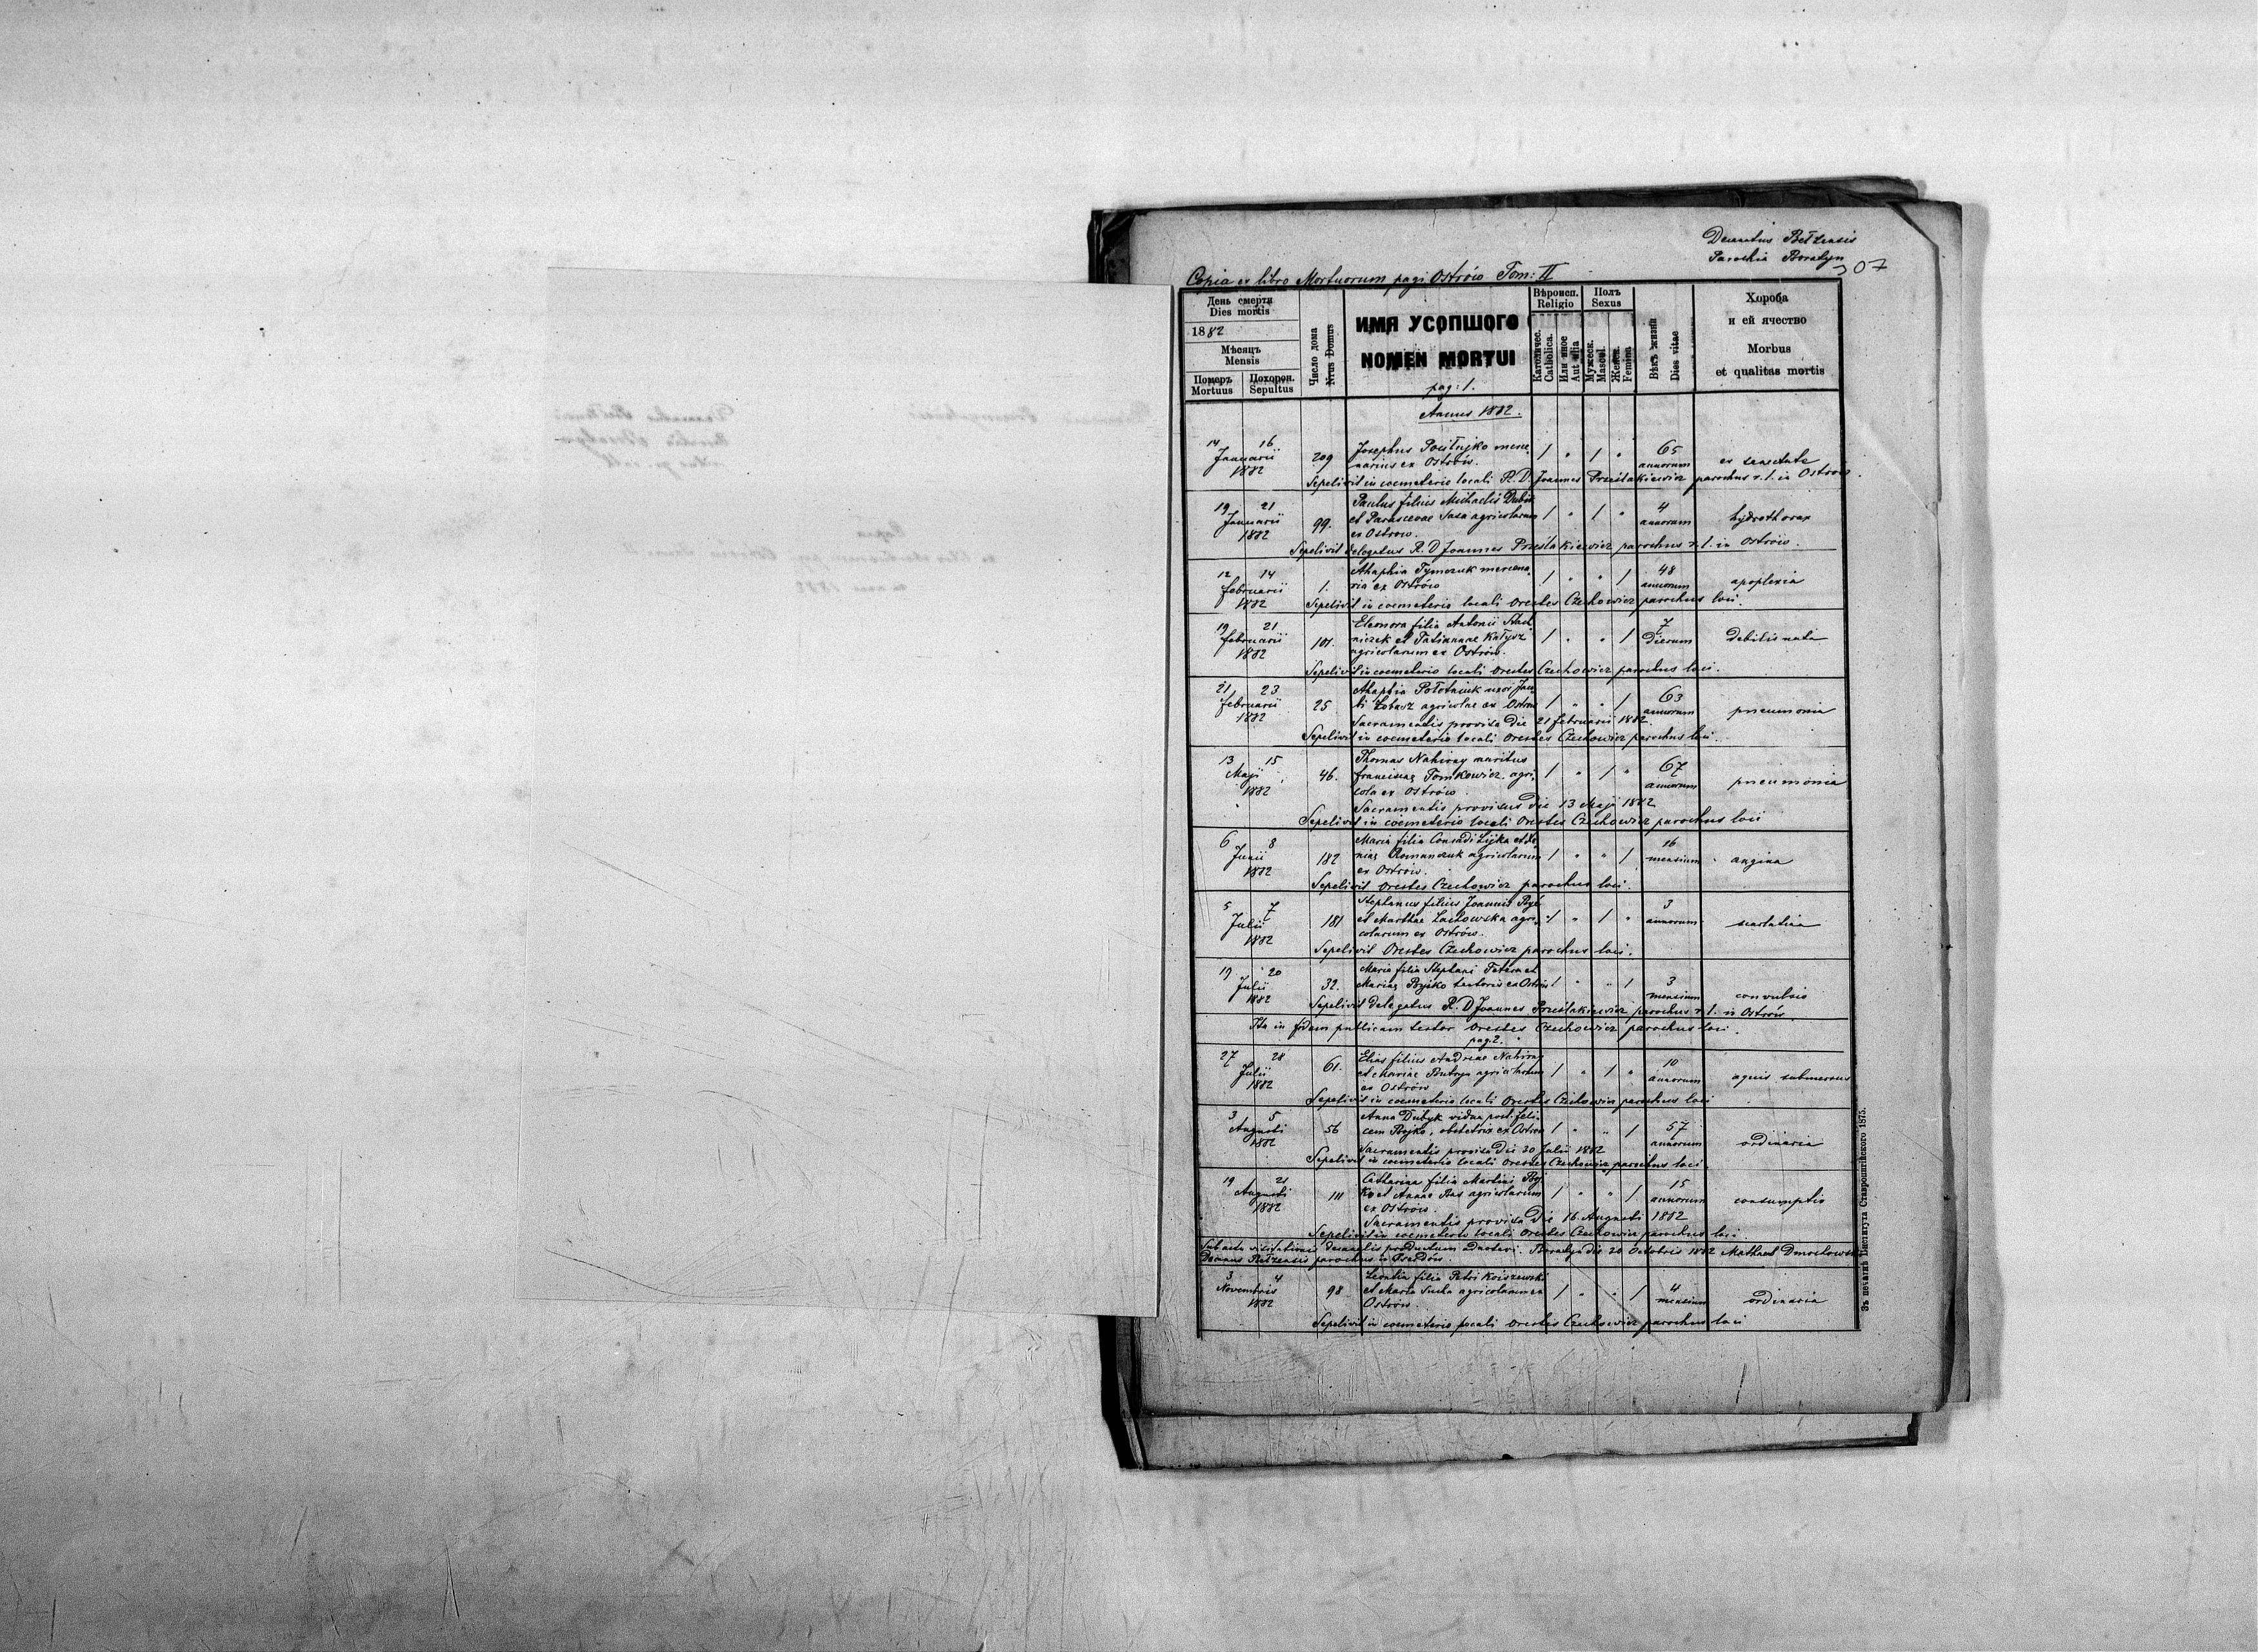 Decanatus Bełzensis
Parochia Boratyn
307
Copia ex libro Mortuorum pagi Ostrów Tom: II
День смерти
Dies mortis
1882
Мѣсяцъ
Mensis
Померъ Похорон.
Mortuus Sepultus
Число дома
Nrus Domus
ИМЯ УСОПШОГО
NOMEN MORTUI
pag: 1.
Вѣроисп.
Religio
Католичес.
Catholica.
Или иное
Aut alia
Полъ
Sexus
Мужеск.
Mascul.
Женск.
Femina
Вѣкъ жизни
Dies vitae
Хороба
и ей ячество
Morbus
et qualitas mortis
Annus 1882.
14 16
Januarii
1882
209
Josephus merce
narius ex Ostrów.
1 " 1 "
65
annorum
ex senectute
Sepelivit in coemeterio locali R. D. Joannes Prześlakiewicz parochus r. l. in Ostrów.
19 21
Januarii
1882
99.
Paulus filius Michaelis Dubik
et Parascevae Sasa agricolarum
ex Ostrow.
1 " 1 "
4
annorum
hydrothorax
Sepelivit delegatus R. D Joannes Prześlakiewicz parochus r. l. in Ostrów.
12 14
februarii
1882
1.
Ahaphia Tymczuk mercena
ria ex Ostrów
1 " " 1
48
annorum
apoplexia
Sepelivit in coemeterio locali Orestes Czechowicz parochus loci.
19 21
februarii
1882
101.
Eleonora filia Antonii Stad
niczek et Tatiannae Kałysz
agricolarum ex Ostrów.
1 " " 1
7
dierum
debilis nata
Sepelivit in coemeterio locali Orestes Czechowicz parochus loci.
21 23
februarii
1882
25
Ahaphia Połotniuk uxor Jaco
bi Łobacz agricolae ex Ostrow
1 " " 1
63
annorum
pneumonia
Sacramentis provisa die 21 februarii 1882.
Sepelivit in coemeterio locali Orestes Czechowicz parochus loci.
13 15
Maji
1882
46.
Thomas Nahirny maritus
franciscae Tomkowicz agri
cola ex Ostrów
1 " 1 "
67
annorum
pneumonia
Sacramentis provisus die 13 Maji 1882
Sepelivit in coemeterio locali Orestes Czechowicz parochus loci
6 8
Junii
1882
182
Maria filia Conradi Lijka et Xe
niae Romanczuk agricolarum
ex Ostrów.
1 " " 1
16
mensium
angina
Sepelivit Orestes Czechowicz parochus loci.
5 7
Julii
1882
181
Stephanus filius Joannis Być
et Marthae Lachowska agri
colarum ex Ostrów.
1 " 1 "
3
annorum
scarlatina
Sepelivit Orestes Czechowicz parochus loci.
19 20
Julii
1882
32.
Maria filia Stephani et
Mariae Bojko textoris ex Ostrów
1 " " 1
3
mensium
convulsio
Sepelivit delegatus R. D Joannes Prześlakiewicz parochus r. l. in Ostrów.
Ita in fidem publicam testor Orestes Czechowicz parochus loci.
pag. 2.
27 28
Julii
1882
61.
Elias filius Andreae Nahirny
et Mariae Butryn agricolarum
ex Ostrów
1 " 1 "
10
annorum
aquis submersus
Sepelivit in coemeterio locali Orestes Czechowicz parochus loci
3 5
Augusti
1882
56
Anna Dubyk vidua post feli
cem Bojko, obstetrix ex Ostrow
1 " " 1
57
annorum
ordinaria
Sacramentis provisa die 30 Julii 1882
Sepelivit in coemeterio locali Orestes Czechowicz parochus loci.
19 21
Augusti
1882
111
Catharina filia Martini Boj
ko et Annae Bas agricolarum
ex Ostrów.
1 " " 1
15
annorum
consumptio
Sacramentis provisa die 16 Augusti 1882
Sepelivit in coemeterio locali Orestes Czechowicz parochus loci.
Sub actu visitationis decanalis productum Boratyn die 20 Octobris 1882
Decanus Bełzensis parochus
3 4
Novembris
1882
98
Leontia filia Petri Koiszewski
et Maria agricolarum ex
Ostrów.
1 " " 1
4
mensium
ordinaria
Sepelivit in coemeterio locali Orestes Czechowicz parochus loci
Зъ печатнѣ Института Ставропигійского 1875.